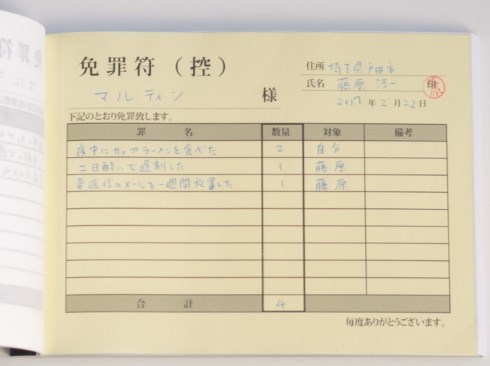 免罪符（控）
住所 埼玉県戸田市
氏名 藤原 浩一 印
マルティン 様
2017年2月22日
下記のとおり免罪致します。
罪名 数量 対象 備考
夜中にカップラーメンを食べた 2 自分
二日酔いで遅刻した 1 藤原
要返信のメールを一週間放置した 1 藤原
合計 4
毎度ありがとうございます。